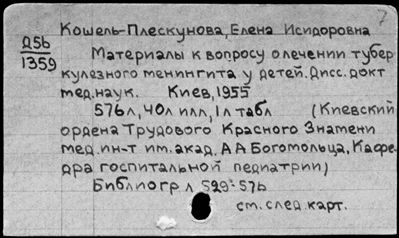 7
Кошель-Плескунова, Елена Исидоровна
Д56
1359
Материалы к вопросу о лечении тубер
кулезного менингита у детей. Дисс. докт
мед. наук. Киев, 1955
576 л, 40 л илл, 1 л табл (Киевский
ордена Трудового Красного Знамени
мед. ин-т им. акад. А А Богомольца, Кафе-
дра госпитальной педиатрии)
Библиогр л 529-576
см. след. карт.